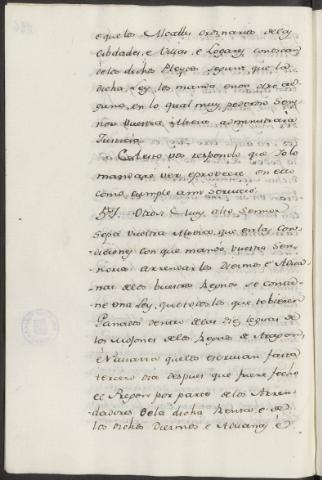 e que los Alcalles ordinarios de las
cibdades, e Villas, e Logares conoscan
de los dichos Pleytos segund que la
dicha Ley los manda, e non otro al-
guno, en lo qual muy poderoso Sen-
nor Vuestra Altesa administrará
Justicia.
A esto vos respondo que Yo lo
mandaré ver, e proveere en ello
como cumple a mi Servicio.
Otrosi Muy alto Sennor
Sepa Vuestra Altesa que en las con-
diciones con que mandó vuestra Sen-
noria arrendar los Diesmos e Adua-
nas de los vuestros Regnos se contie-
ne una Ley, que todos los que tobieren
Ganados dentro de las dies leguas de
los Mojones de los Regnos de Aragon,
e Navarra que los escrivan fasta
tercero dia despues que fuere fecho
el Pregon por parte de los Arren-
dadores de la dicha Renta, e de
los dichos Diesmos e Aduanas, e